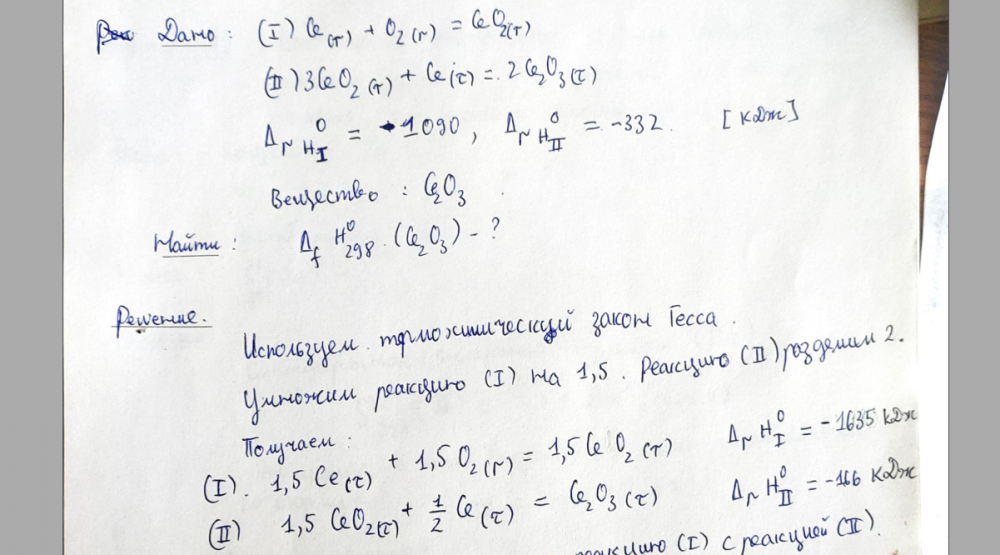 Дано: (I) Ce(т) + O₂(г) = CeO₂(т)
(II) 3CeO₂(т) + Ce(т) = 2Ce₂O₃(т)
ΔᵣH⁰_I = -1090, ΔᵣH⁰_II = -332. [кДж]
Вещество: Ce₂O₃.
Найти: Δ_f H⁰₂₉₈ (Ce₂O₃) - ?
Решение.
Используем термохимический закон Гесса.
Умножим реакцию (I) на 1,5. Реакцию (II) разделим 2.
Получаем:
(I). 1,5 Ce(т) + 1,5 O₂(г) = 1,5 CeO₂(т) ΔᵣH⁰_I = -1635 кДж
(II) 1,5 CeO₂(т) + 1/2 Ce(т) = Ce₂O₃(т) ΔᵣH⁰_II = -166 кДж
(I) с реакцией (II).